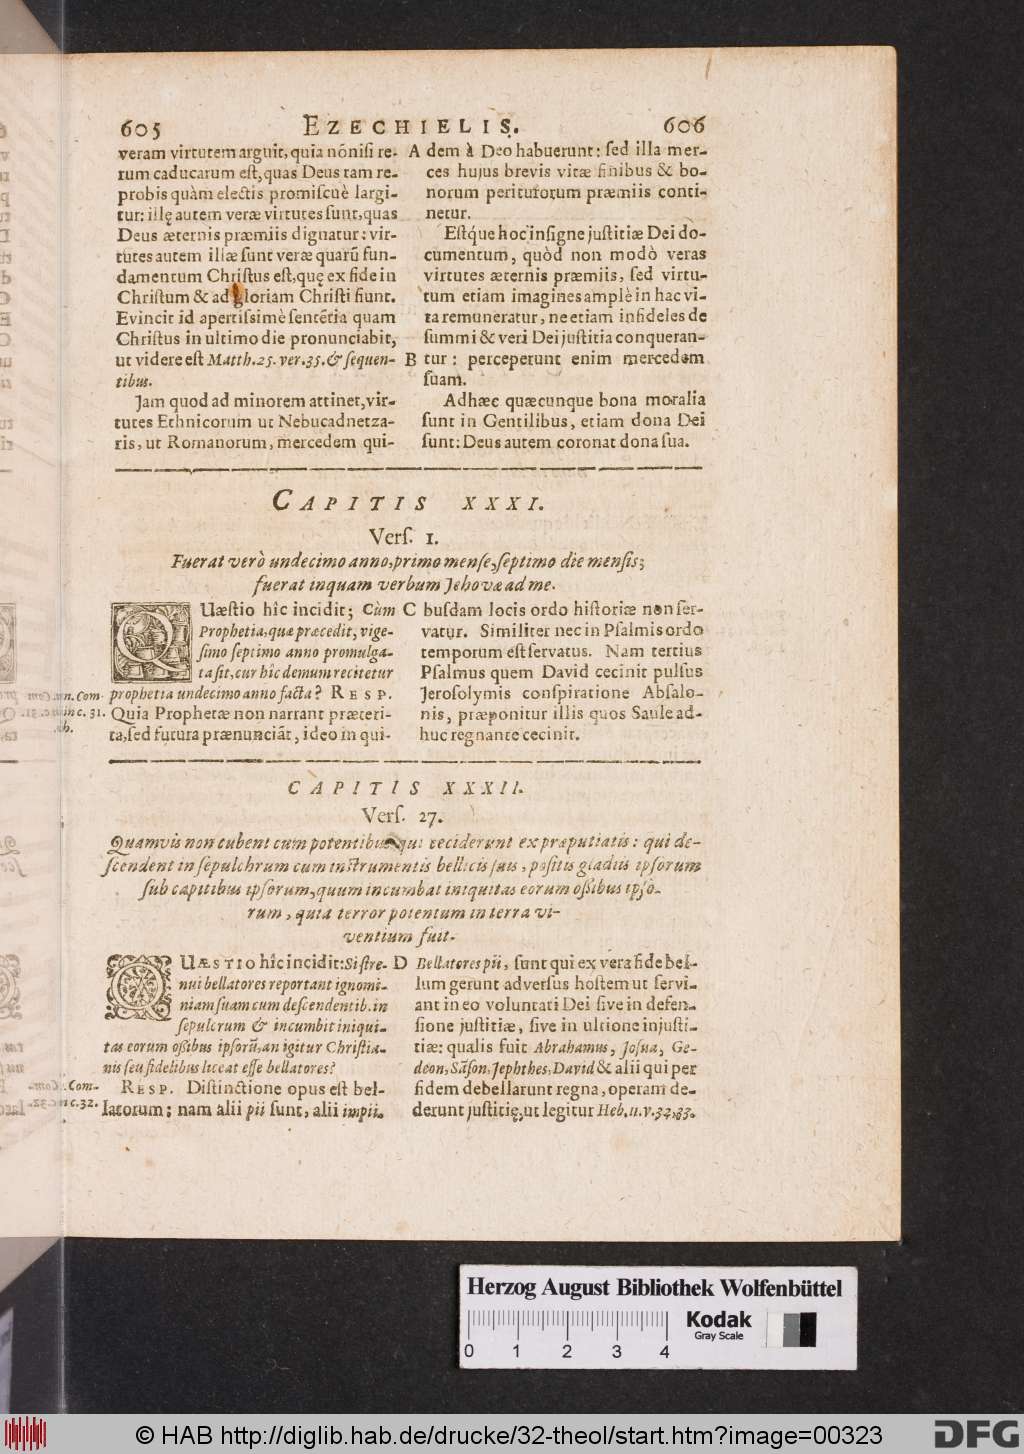 605 EZECHIELIS. 606
veram virtutem arguit, quia nõnisi re-
rum caducarum est, quas Deus tam re-
probis quàm electis promiscuè largi-
tur: illę autem veræ virtutes sunt, quas
Deus æternis præmiis dignatur: vir-
tutes autem illæ sunt veræ quarũ fun-
damentum Christus est, quę ex fide in
Christum & ad gloriam Christi fiunt.
Evincit id apertissimè sentẽtia quam
Christus in ultimo die pronunciabit,
ut videre est Matth. 25. ver. 35. & sequen-
tibus.
Jam quod ad minorem attinet, vir-
tutes Ethnicorum ut Nebucadnetza-
ris, ut Romanorum, mercedem qui-
A dem à Deo habuerunt: sed illa mer-
ces hujus brevis vitæ finibus & bo-
norum periturorum præmiis conti-
netur.
Estq́ue hoc insigne justitiæ Dei do-
cumentum, quòd non modò veras
virtutes æternis præmiis, sed virtu-
tum etiam imagines amplè in hac vi-
ta remuneratur, ne etiam infideles de
summi & veri Dei justitia conqueran-
B tur: perceperunt enim mercedem
suam.
Ad hæc quæcunque bona moralia
sunt in Gentilibus, etiam dona Dei
sunt: Deus autem coronat dona sua.
CAPITIS XXXI.
Vers. 1.
Fuerat verò undecimo anno, primo mense, septimo die mensis;
fuerat inquam verbum Jehovæ ad me.
QUæstio hîc incidit; Cùm
Prophetia, quæ præcedit, vige-
simo septimo anno promulga-
ta sit, cur hîc demum recitetur
prophetia undecimo anno facta? RESP.
Quia Prophetæ non narrant præteri-
ta, sed futura prænunciãt, ideo in qui-
C busdam locis ordo historiæ non ser-
vatur. Similiter nec in Psalmis ordo
temporum est servatus. Nam tertius
Psalmus quem David cecinit pulsus
Jerosolymis conspiratione Absalo-
nis, præponitur illis quos Saule ad-
huc regnante cecinit.
n. Com-
in c. 31.
CAPITIS XXXII.
Vers. 27.
Quamvis non cubent cum potentibus qui ceciderunt ex præputiatis: qui de-
scendent in sepulchrum cum instrumentis bellicis suis, positis gladiis ipsorum
sub capitibus ipsorum, quum incumbat iniquitas eorum ossibus ipso-
rum, quia terror potentum in terra vi-
ventium fuit.
QUÆSTIO hîc incidit: Si stre-
nui bellatores reportant ignomi-
niam suam cum descendentib. in
sepulcrum & incumbit iniqui-
tas eorum ossibus ipsorũ, an igitur Christia-
nis seu fidelibus liceat esse bellatores?
RESP. Distinctione opus est bel-
latorum; nam alii pii sunt, alii impii.
Com-
in c. 32.
D Bellatores pii, sunt qui ex vera fide bel-
lum gerunt adversus hostem ut servi-
ant in eo voluntati Dei sive in defen-
sione justitiæ, sive in ultione injusti-
tiæ: qualis fuit Abrahamus, Josua, Ge-
deon, Sãson, Jephthes, David & alii qui per
fidem debellarunt regna, operam de-
derunt justitię, ut legitur Heb. 11. v. 32, 33.
Herzog August Bibliothek Wolfenbüttel
Kodak
Gray Scale
0 1 2 3 4
© HAB http://diglib.hab.de/drucke/32-theol/start.htm?image=00323
DFG